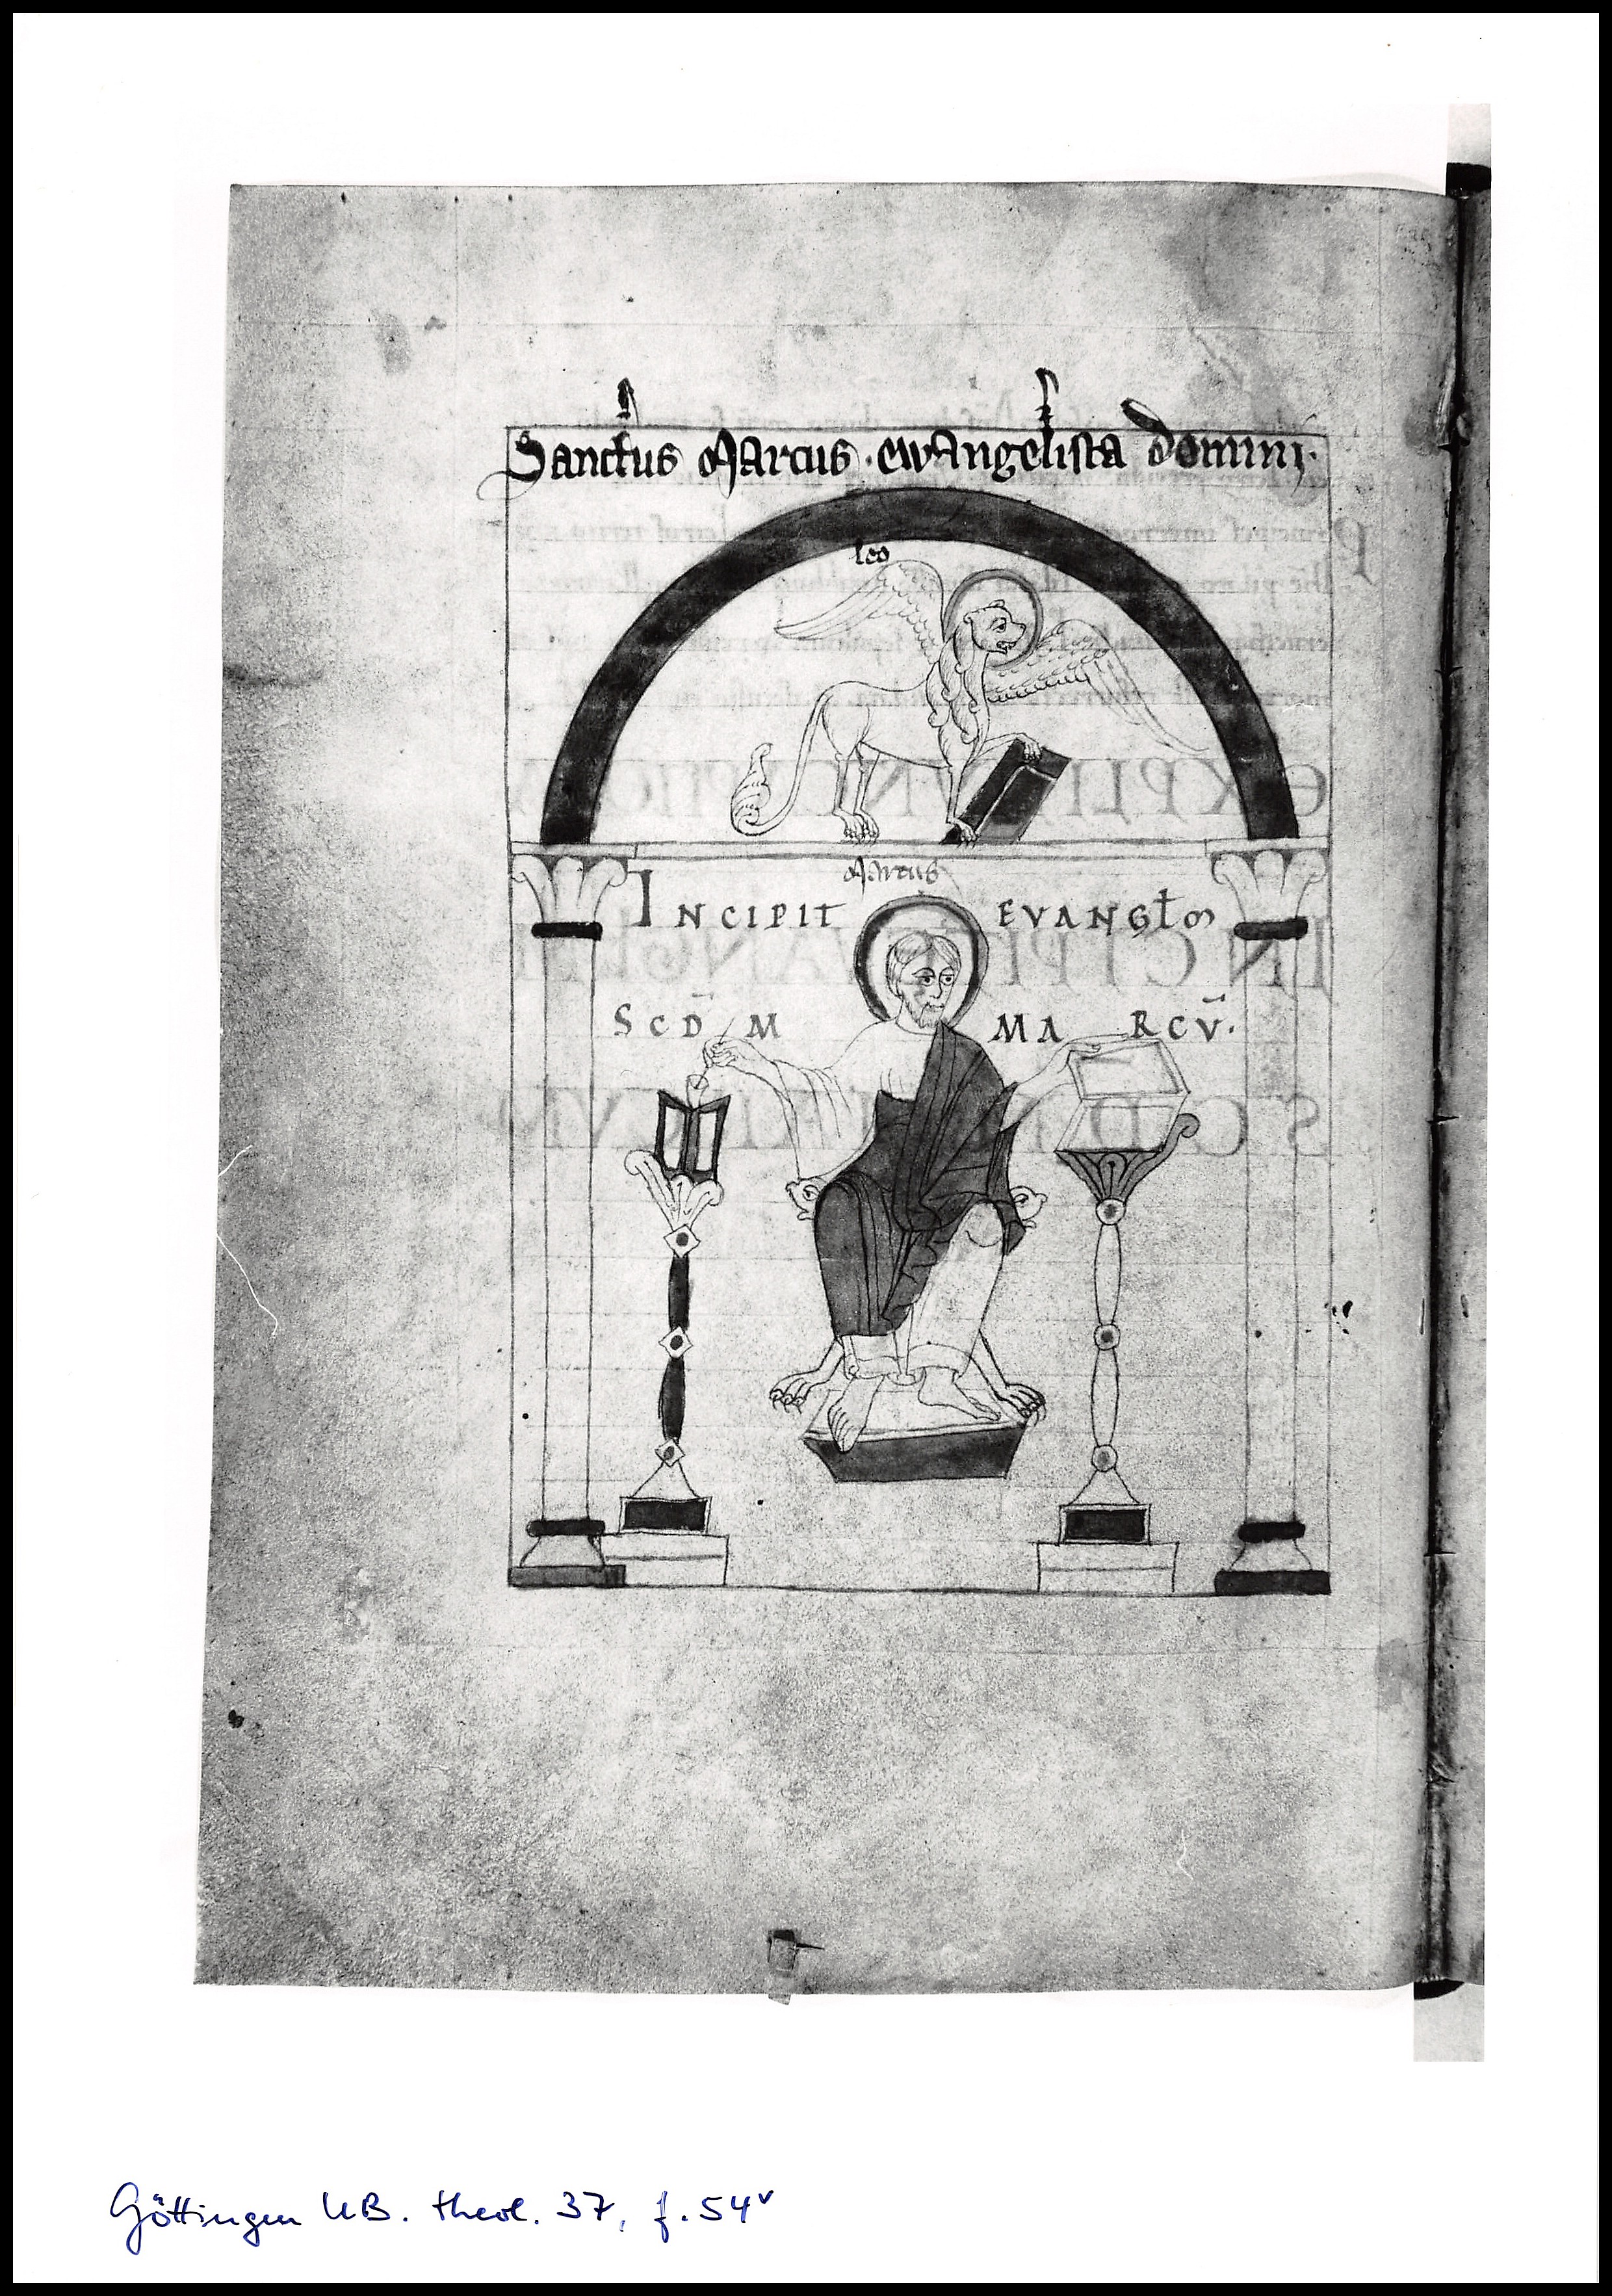 Sanctus Marcus · ewangelista domini ·
leo
Marcus
INCIPIT EVANGłm
SCD̄M MARCV̄.
Göttingen UB. theol. 37, f. 54v